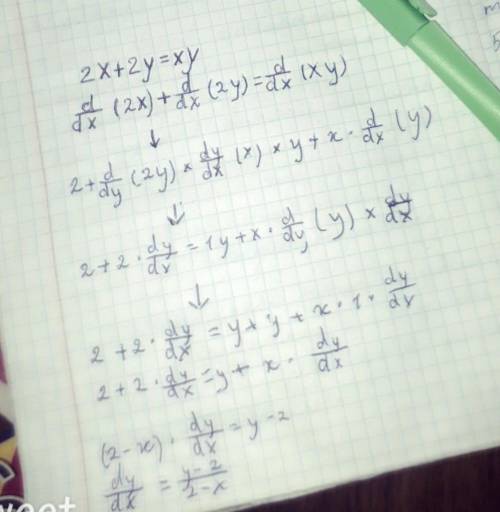 2x+2y=xy
d/dx (2x) + d/dx (2y) = d/dx (xy)
↓
2 + d/dy (2y) × dy/dx (x) × y + x · d/dx (y)
↓
2 + 2 · dy/dx = 1y + x · d/dy (y) × dy/dx
↓
2 + 2 · dy/dx = y + y + x · 1 · dy/dx
2 + 2 · dy/dx = y + x · dy/dx
(2-x) · dy/dx = y-2
dy/dx = y-2/2-x